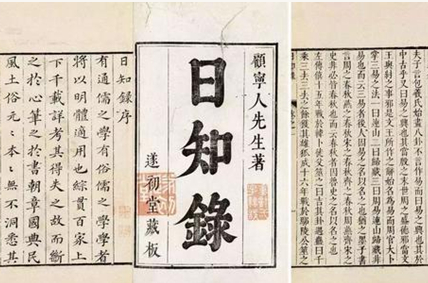 日知錄序
有通儒之學有俗儒之學學者
將以明體適用也綜貫百家上
下千載詳考其得失之故而斷
之於心筆之於書朝章國典民
風土俗元〻本〻無不洞悉其
顧寧人先生著
日知錄
遂初堂藏板
夫子言包羲氏始畫八卦不言作易而曰易之興也其於
中古乎又曰易之興也其當殷之末世周之盛德邪當文
王與紂之事邪是文王所作之辭始名為易而周官大卜
掌三易之法一曰連山二曰歸藏三曰周易連山歸藏非
易也而云三易者後人因易之名以名之也猶之墨子書
言周之春秋燕之春秋宋之春秋齊之春秋周燕齊宋之
史非必皆春秋也而云春秋者因魯史之名以名之也
左傳僖十五年戰於韓卜徒父筮之曰吉其卦遇蠱曰千
乘三去三去之餘獲其雄狐成十六年戰於鄢陵公筮之